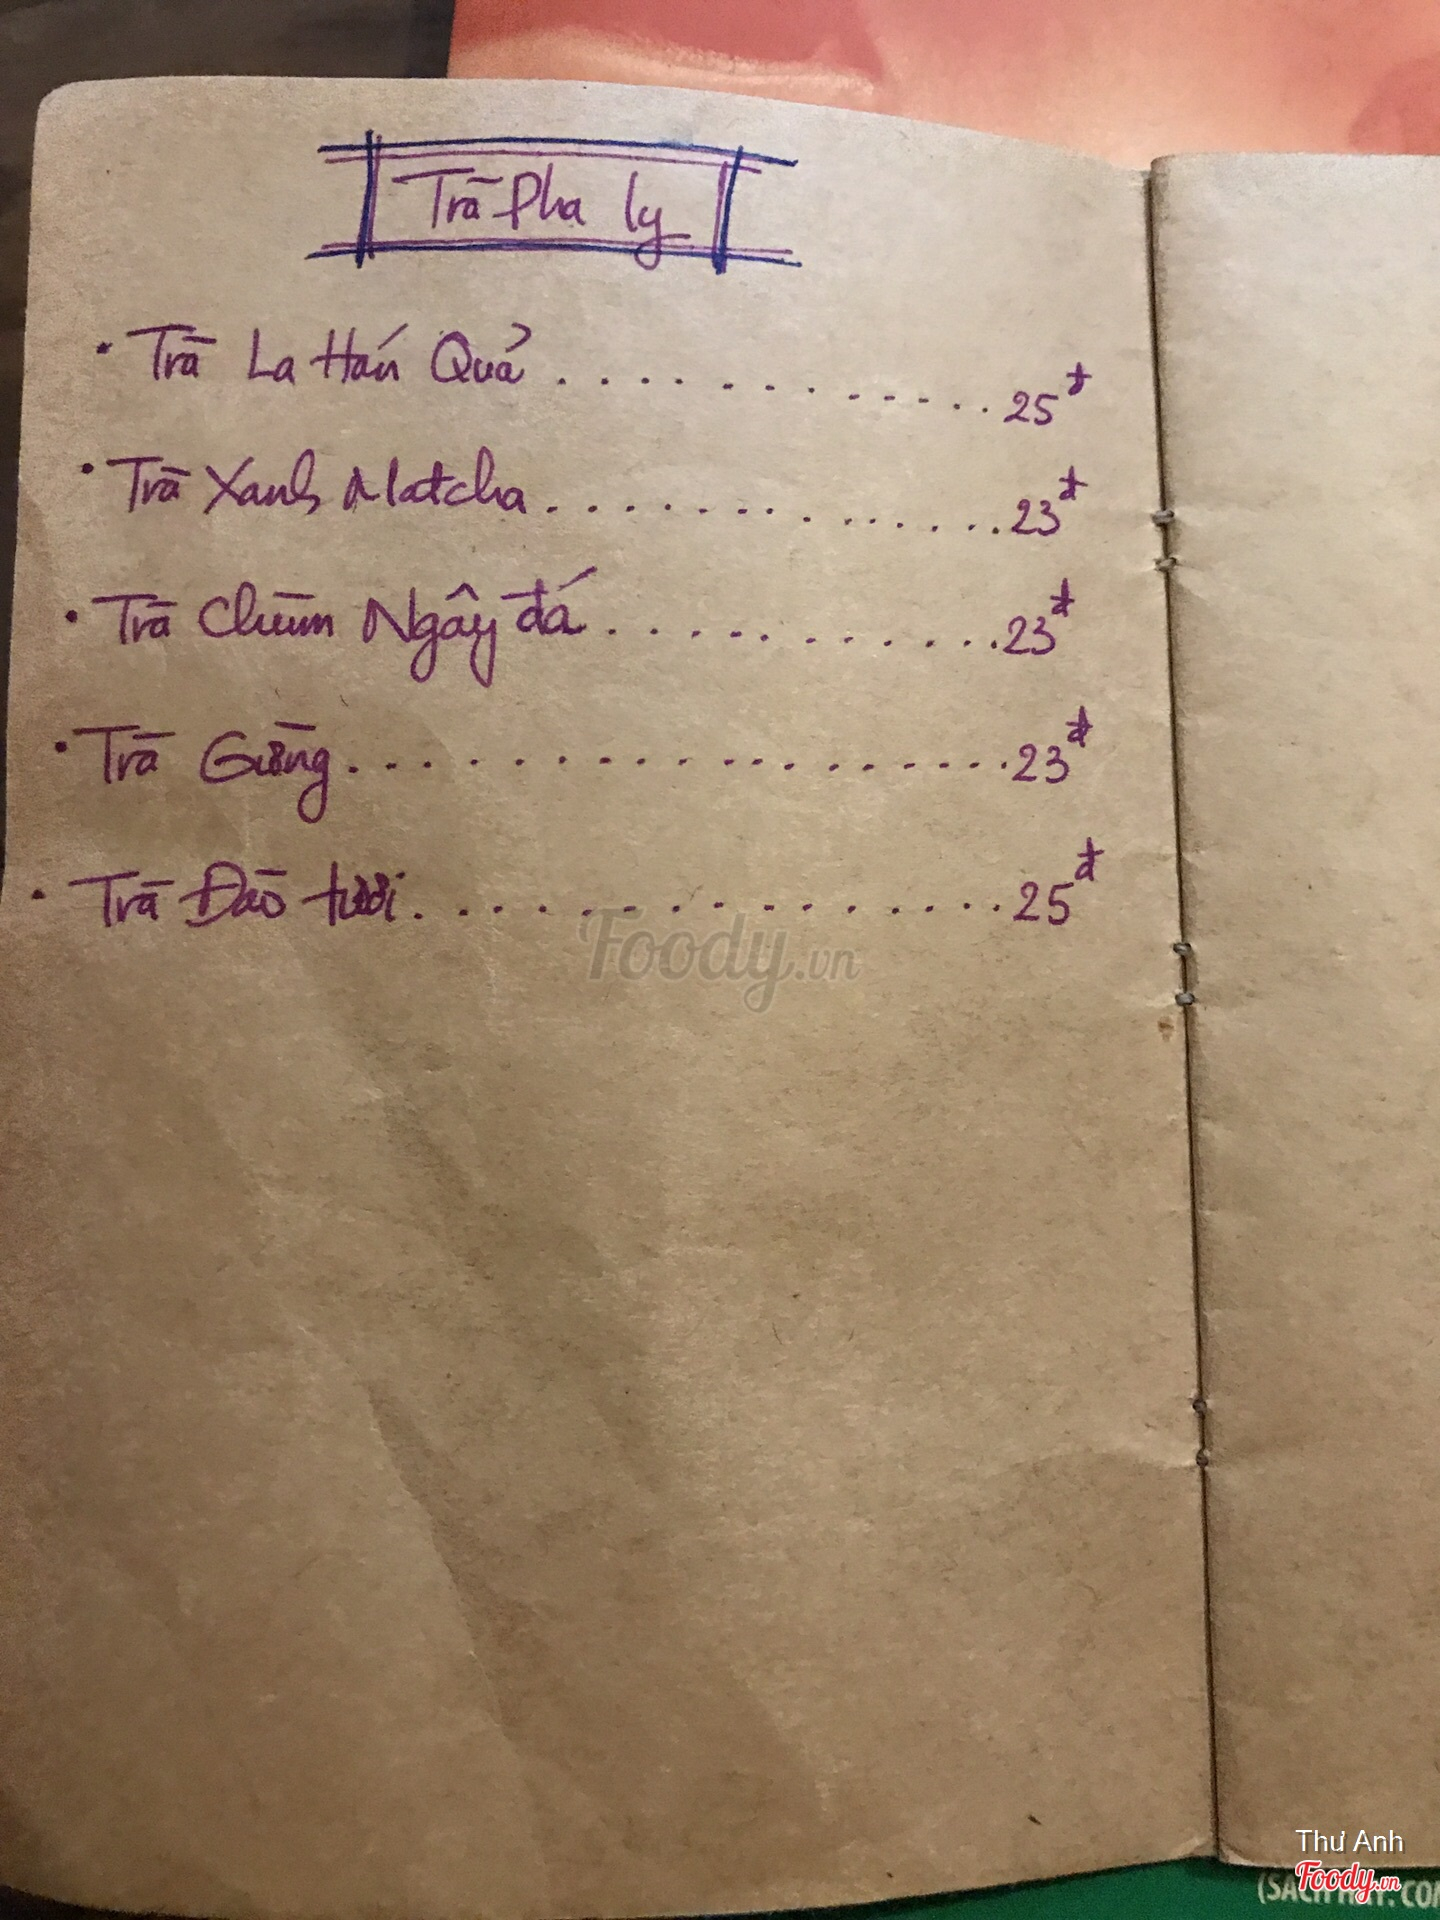 Trà Pha ly
• Trà La Hán Quả ............ 25đ
• Trà Xanh Matcha ............. 23đ
• Trà Chùm Ngây đá ........... 23đ
• Trà Gừng .................. 23đ
• Trà Đào tươi ............... 25đ
Foody.vn
Thư Anh
Foody.vn